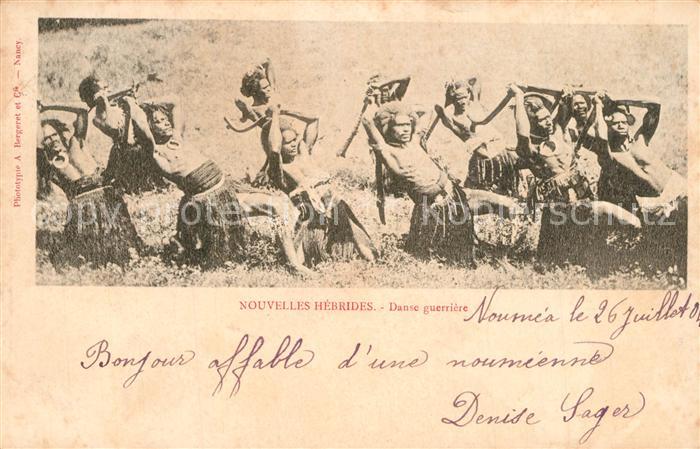 Phototypie A. Bergeret et Cie. — Nancy.
copyright protection copyright protection
NOUVELLES HÉBRIDES. - Danse guerrière
Nouméa le 26 Juillet
Bonjour affable d'une nouméenne
Denise Sager